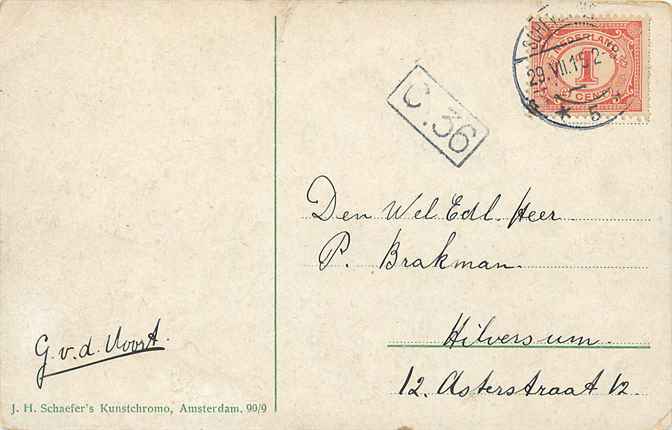 NEDERLAND
1
CENT
29.VII.15.2-
5
C.36
Den Wel Edl. Heer
P. Brakman.
Hilversum.
12. Asterstraat 12.
G. v. d. Voort.
J. H. Schaefer's Kunstchromo, Amsterdam. 90/9